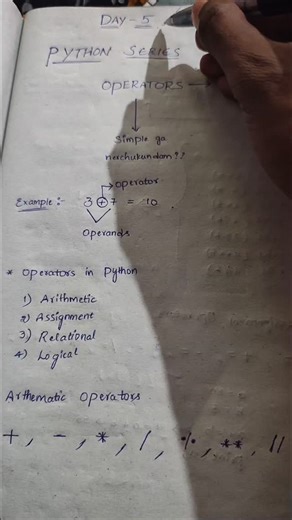 DAY - 5
PYTHON SERIES
OPERATORS →
Simple ga
nerchukundam!!
operator
Example :- 3 + 7 = 10.
Operands
* Operators in Python
1) Arithmetic
2) Assignment
3) Relational
4) Logical
Arthematic Operators
+, -, *, /, %, **, //